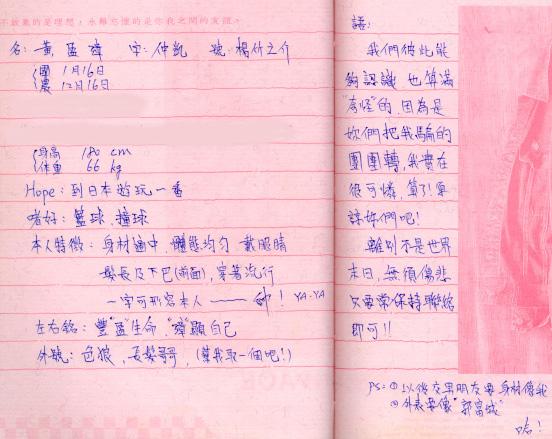 不放棄的是理想，永難忘懷的是你我之間的友誼。
名：黃孟禕 字：仲凱 號：楊竹之介
國 1月16日
農 12月16日
身高 180 cm
体重 66 kg
Hope：到日本遊玩一番
嗜好：籃球、撞球
本人特徵：身材適中、體態均勻 戴眼睛
髮長及下巴(兩面)，穿著流行
一字可形容本人——帥！YA-YA
左右銘：豐"孟"生命，"禕"顯自己
外號：色狼，長髮哥哥，(幫我取一個吧！)
語：
我們彼此能
夠認識，也算滿
"奇怪"的，因為是
妳們把我騙的
團團轉，我實在
很可憐，算了！原
諒妳們吧！
離別不是世界
末日，無須傷悲
只要常保持聯絡
即可!!
PS：① 以後交男朋友要身材像我
② 外表要像"郭富城"
哈！